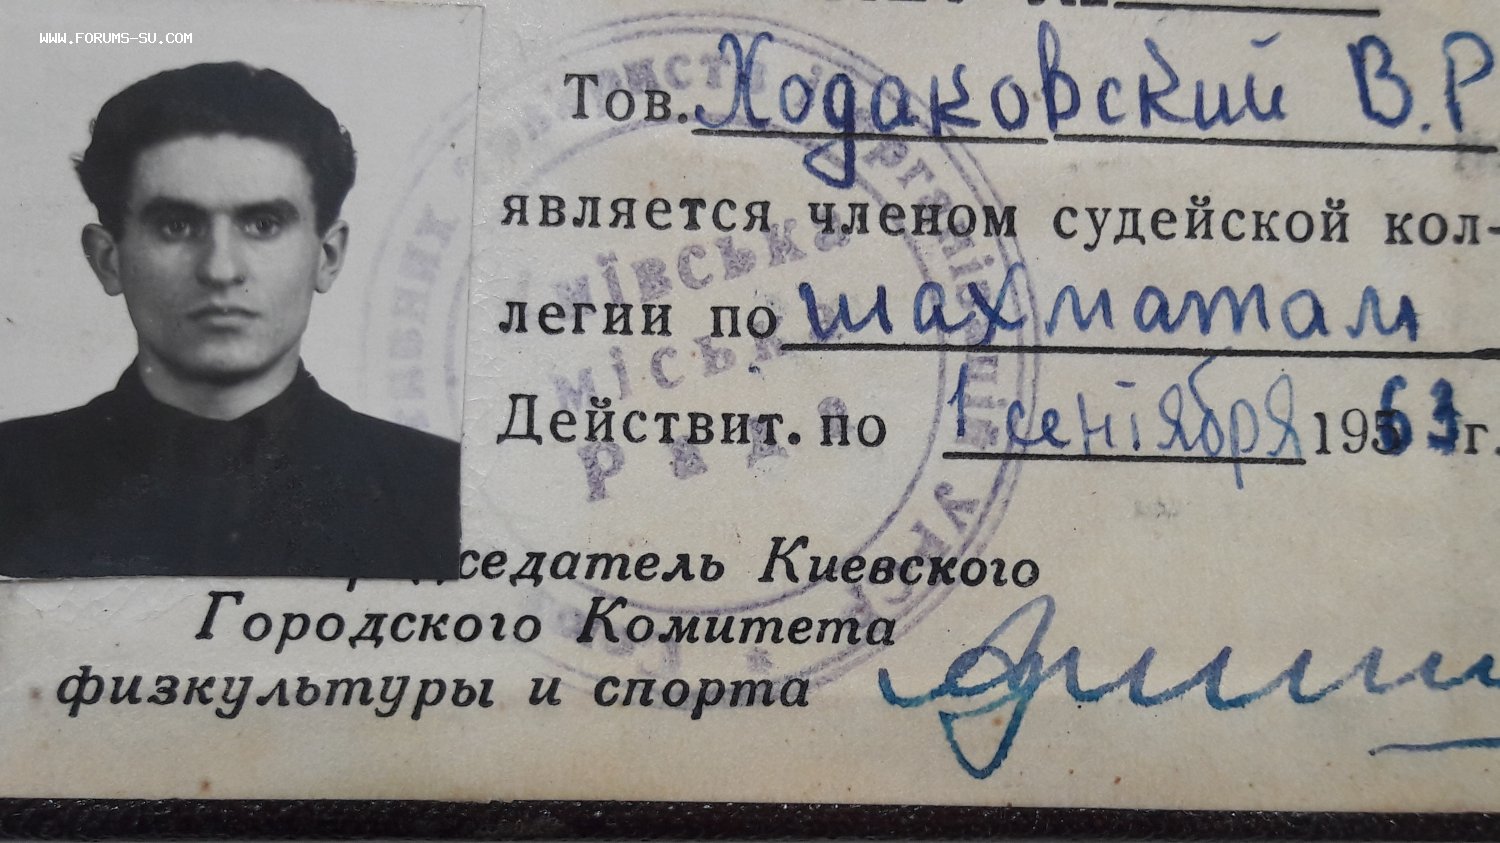 WWW.FORUMS-SU.COM
Тов. Ходаковский В.Р
является членом судейской кол-
легии по шахматам
Действит. по 1 сентября 1963 г.
седатель Киевского
Городского Комитета
физкультуры и спорта
київська
міська
рада